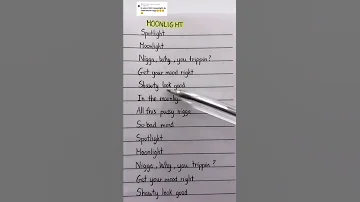 MOONLIGHT
Spotlight
Moonlight
Nigga, Why, you trippin?
Get your mood right
Shawty look good
In the moonlight
All this pussy nigga
So bad mind
Spotlight
Moonlight
Nigga, Why, you trippin?
Get your mood right
Shawty look good